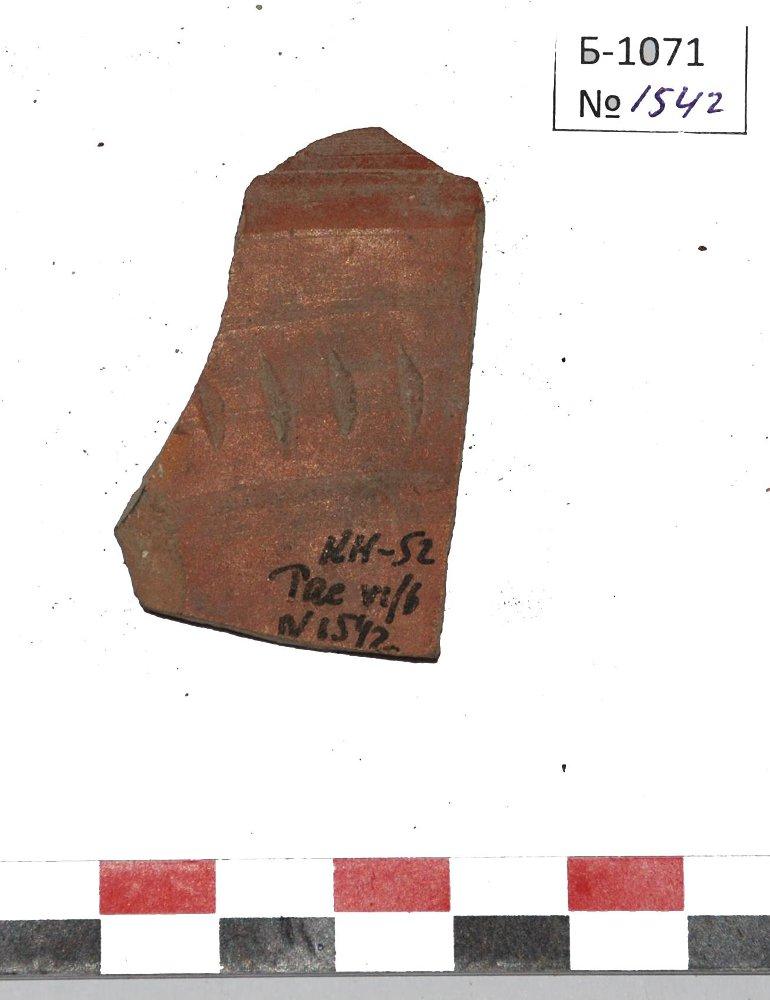 Б-1071
№ 1542
КН-52
Рас VI/6
N 1542